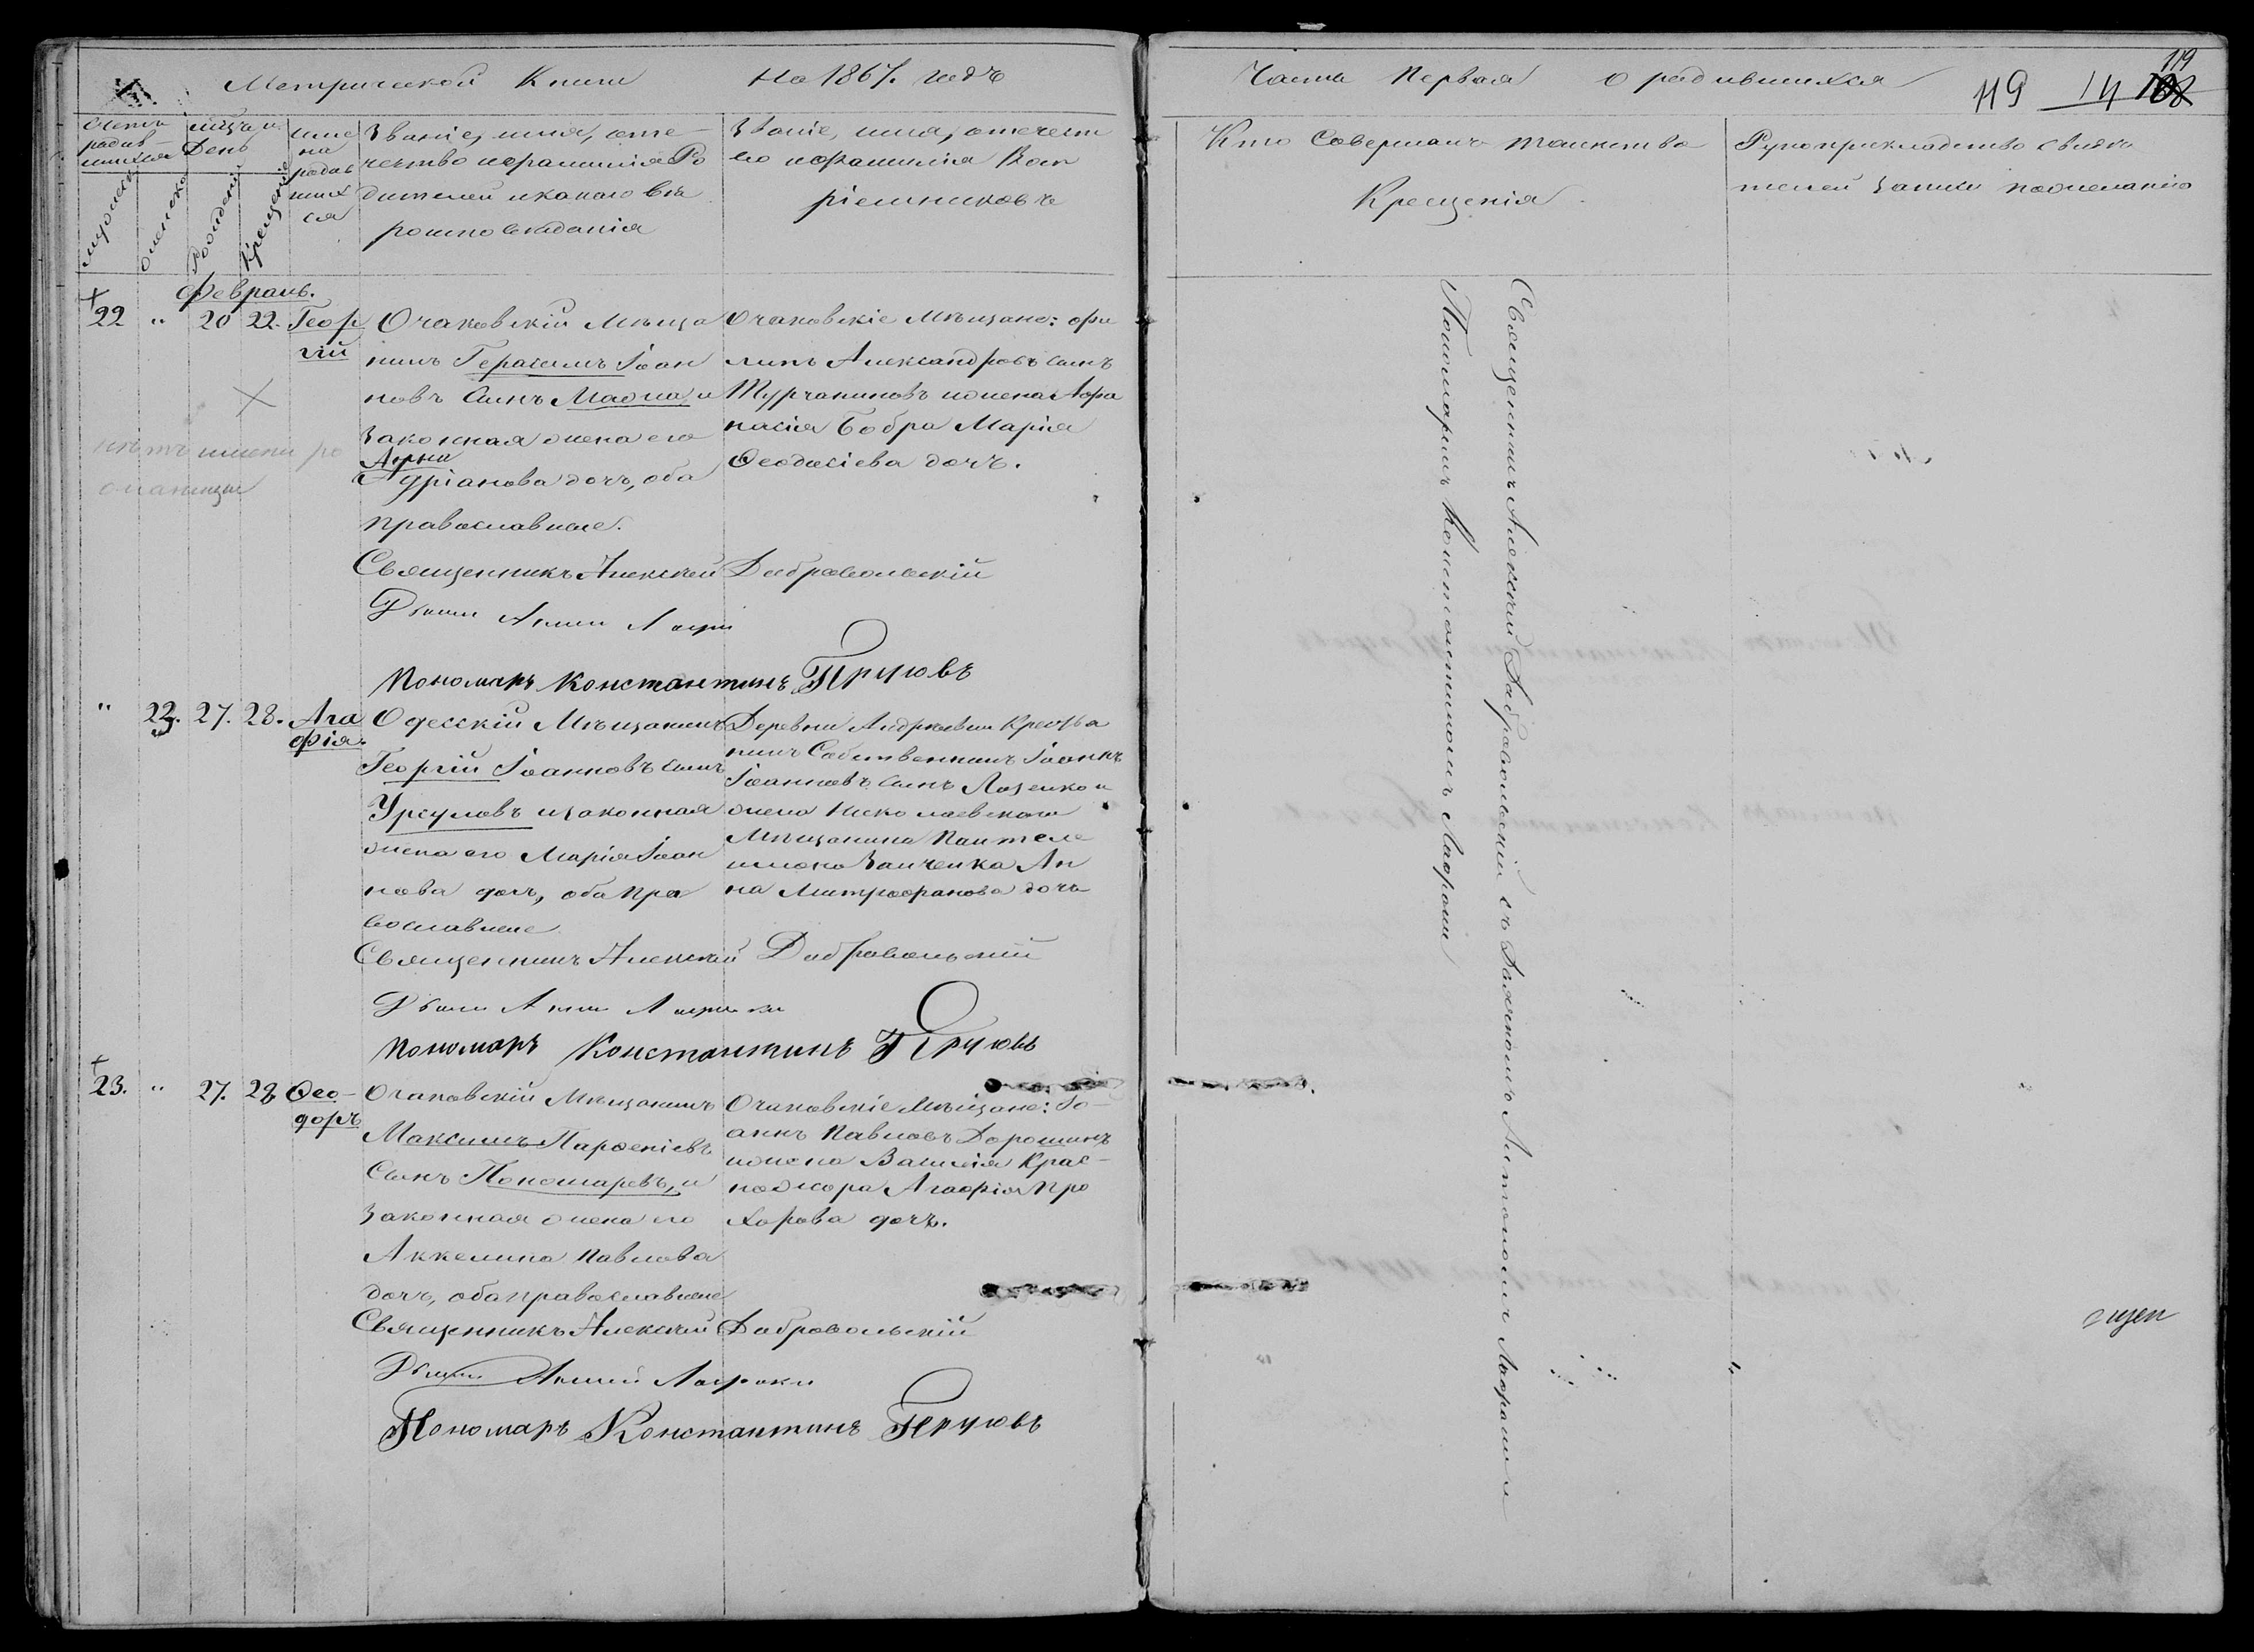 Метрической Книги На 1867. годъ
Счетъ родив-шихся
мужеска
женска
мѣсяцъ и День
Рожденія
Крещенія
имена родив шихся
Званіе, имя, оте-
чество и фамилія Ро
дителей и какого вѣ
роисповѣданія
Званіе, имя, отечест
во и фамилія Восп
ріемниковъ
Февраль.
22 " 20 22. Геор
гій
Очаковскій Мѣща
нинъ Герасимъ Іоан
новъ Сынъ и
Законная жена его
Адріанова дочь, оба
православные.
Очаковскіе Мѣщане: Фи
липъ Александровъ сынъ
Турчаниновъ и жена Афа
насія Бобра Марія
Ѳеодосіева дочь.
нѣтъ имени
Священникъ Алексѣй Добровольскій
Пономарь Константинъ
" 23. 27. 28. Ага
фія.
Одесскій Мѣщанинъ
Георгій Іоанновъ сынъ
Урсуловъ и законная
жена его Марія Іоан
нова дочь, оба Пра
вославные
Деревни Андреевки Крестья
нинъ Собственникъ Іоаннъ
Іоанновъ Сынъ Лозенко и
жена Николаевского
Мѣщанина Пантеле
имона Заиченка Ан
на Митрофанова дочь
Священникъ Алексѣй Добровольскій
Пономарь Константинъ
23. " 27. 28 Ѳео-
доръ
Очаковскій Мѣщанинъ
Максимъ Парѳеніевъ
Сынъ Пономаревъ, и
Законная жена его
Аккелина Павлова
дочь, оба православные
Очаковскіе Мѣщане: Іо-
аннъ Павловъ Дорошинъ
и жена Василія Крас-
ножора Агафія Про
хорова дочь.
Священникъ Алексѣй Добровольскій
Пономарь Константинъ
Часть Первая о родившихся
119 14 108
119
Кто Совершалъ таинство
Крещенія
Рукоприкладство свидѣ
телей записи по желанію
Священникъ Алексѣй Добровольскій съ
Пономаремъ Константиномъ